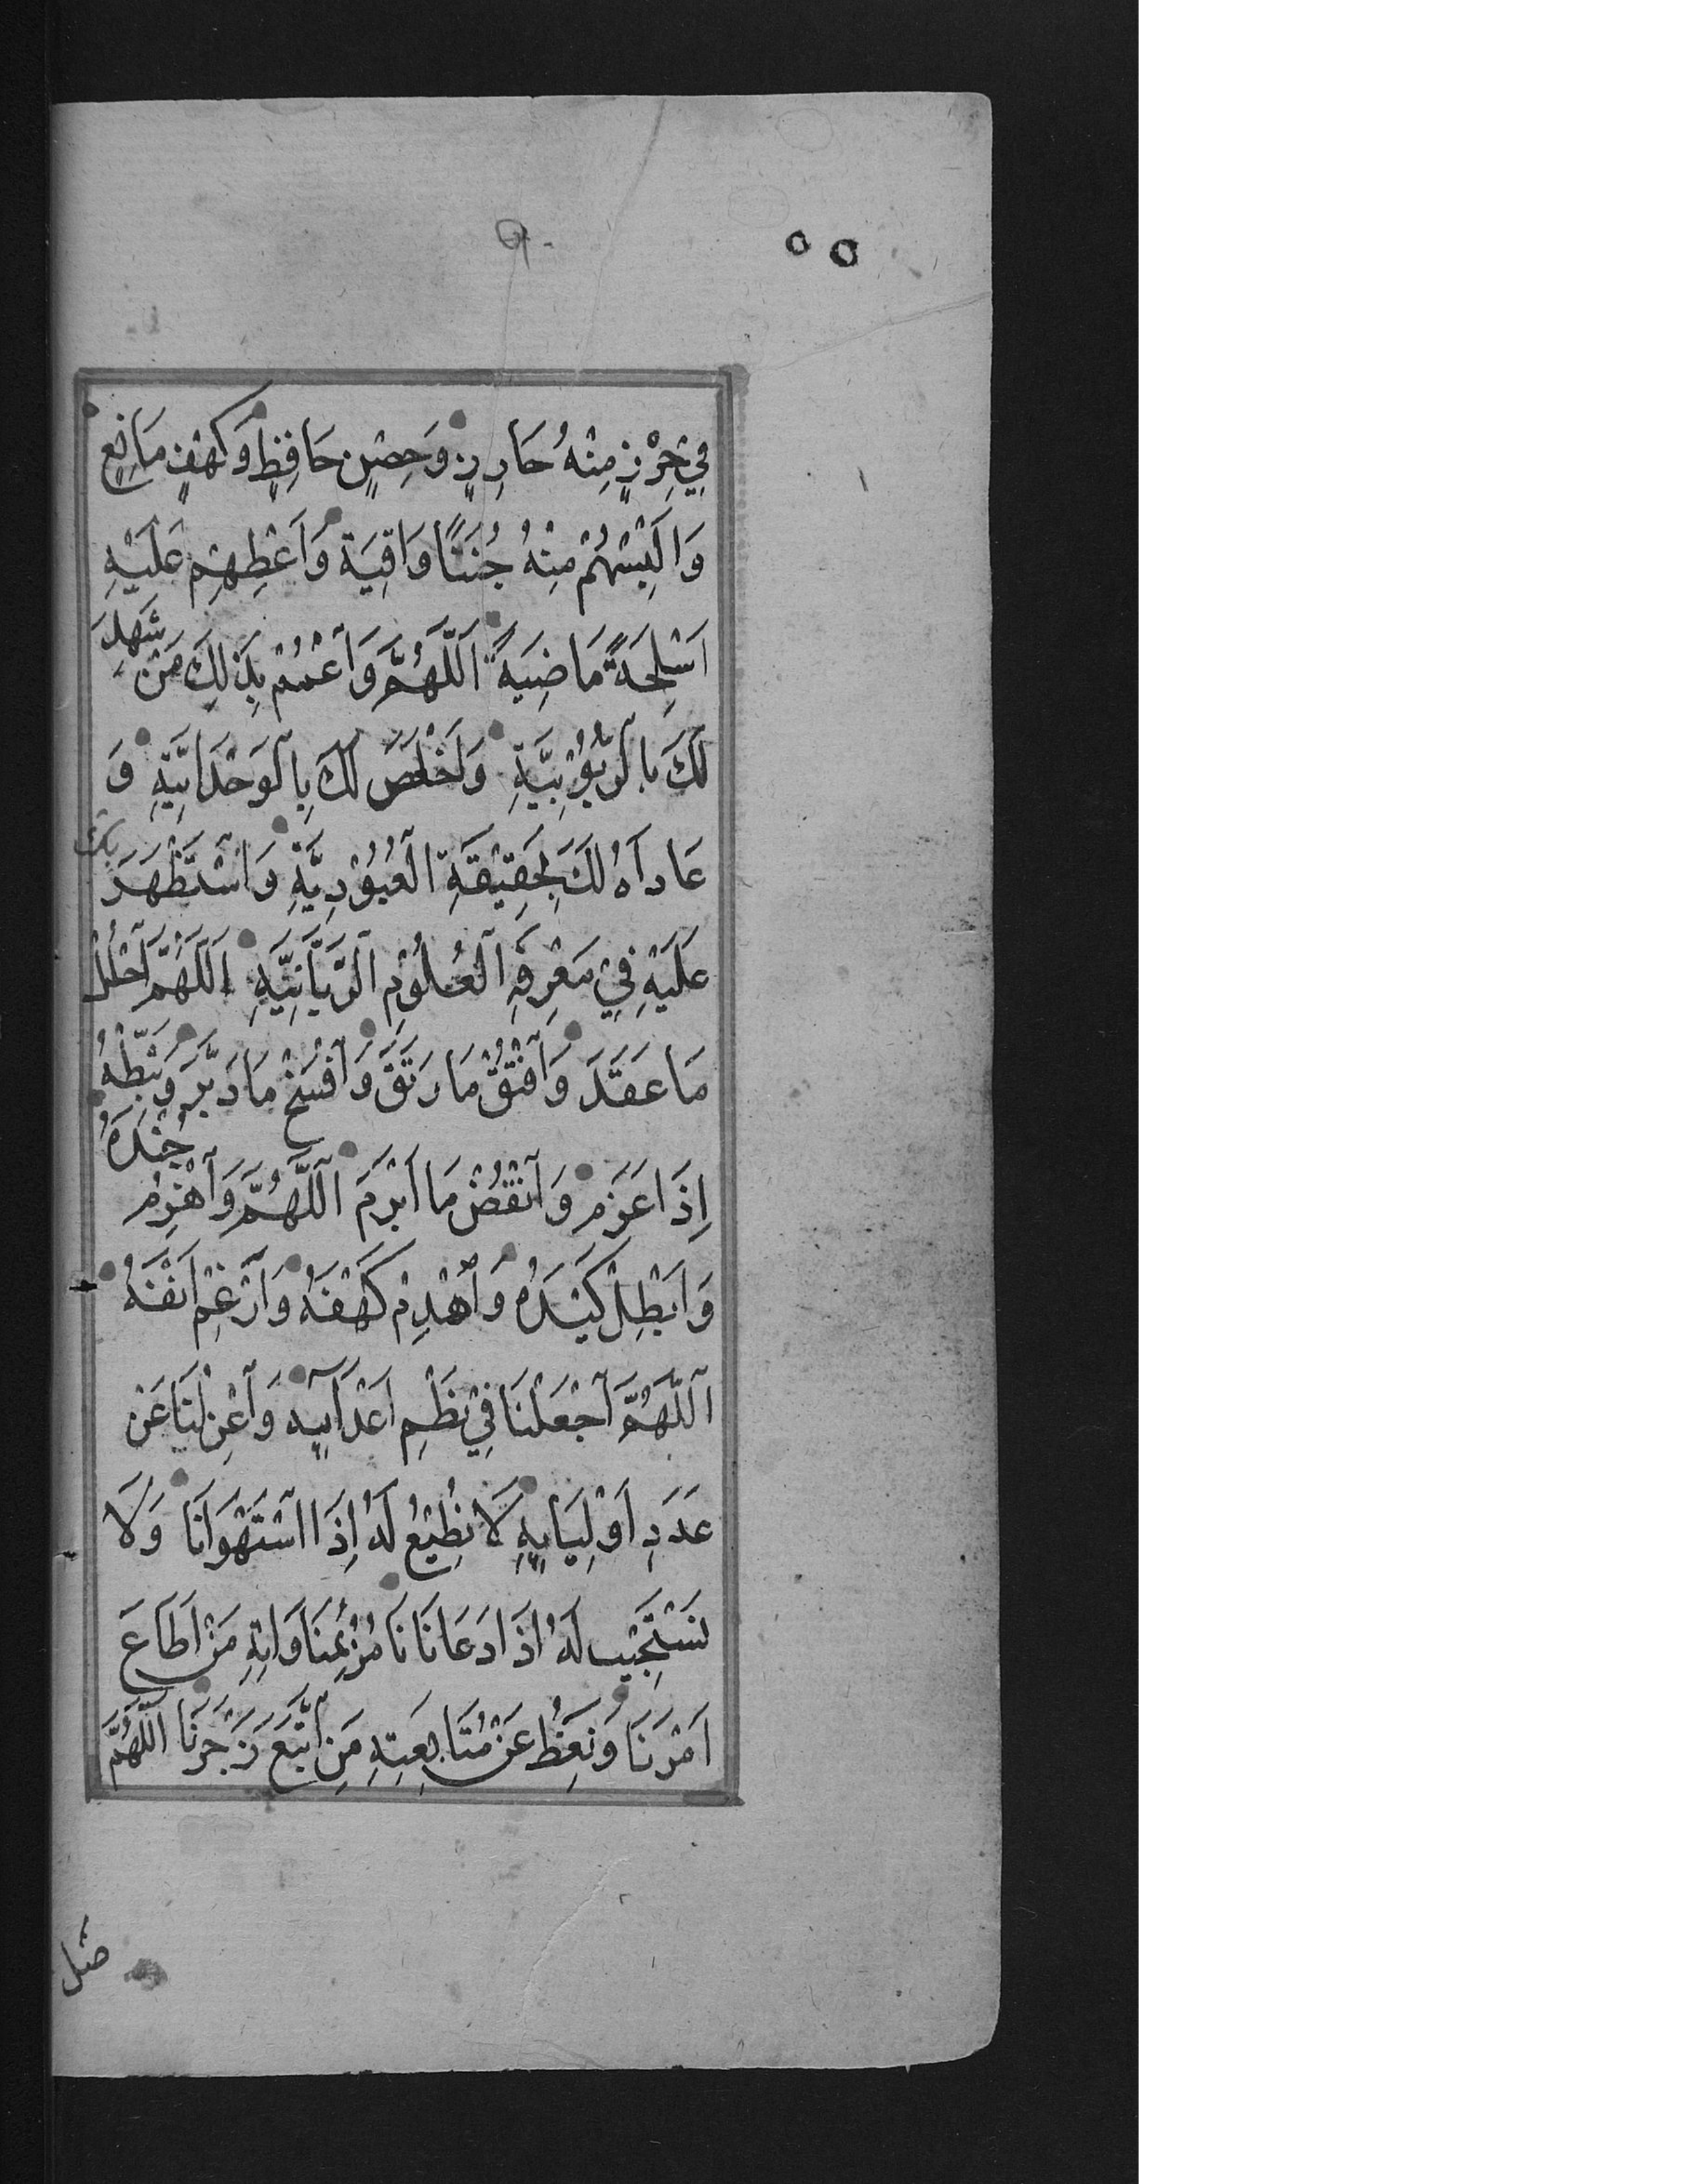 ٩٠
٥٥
فِي حِرْزٍ مِنْهُ حَارِزٍ وَحِصْنٍ حَافِظٍ وَكَهْفٍ مَانِعٍ
وَاَلْبِسْهُمْ مِنْهُ جُنَنًا وَاقِيَةً وَاَعْطِهِمْ عَلَيْهِ
اَسْلِحَةً مَاضِيَةً اَللّٰهُمَّ وَاعْمُمْ بِذٰلِكَ مَنْ شَهِدَ
لَكَ بِالرُّبُوْبِيَّةِ وَاَخْلَصَ لَكَ بِالْوَحْدَانِيَّةِ وَ
عَادَاهُ لَكَ بِحَقِيْقَةِ الْعُبُوْدِيَّةِ وَاسْتَظْهَرَ بِكَ
عَلَيْهِ فِيْ مَعْرِفَةِ الْعُلُوْمِ الرَّبَّانِيَّةِ اَللّٰهُمَّ احْلُلْ
مَا عَقَدَ وَافْتُقْ مَا رَتَقَ وَافْسَخْ مَا دَبَّرَ وَثَبِّطْهُ
اِذَا عَزَمَ وَانْقُضْ مَا اَبْرَمَ اَللّٰهُمَّ وَاهْزِمْ جُنْدَهُ
وَاَبْطِلْ كَيْدَهُ وَاهْدِمْ كَهْفَهُ وَاَرْغِمْ اَنْفَهُ
اَللّٰهُمَّ اجْعَلْنَا فِيْ نَظْمِ اَعْدَآئِهِ وَاعْزِلْنَا عَنْ
عَدَدِ اَوْلِيَائِهِ لَا نُطِيْعُ لَهُ اِذَا اسْتَهْوَانَا وَلَا
نَسْتَجِيْبُ لَهُ اِذَا دَعَانَا نَأْمُرُ بِمُنَاوَاتِهِ مَنْ اَطَاعَ
اَمْرَنَا وَنَعِظُ عَنْ مُتَابَعَتِهِ مَنِ اتَّبَعَ زَجْرَنَا اَللّٰهُمَّ
صَلِّ